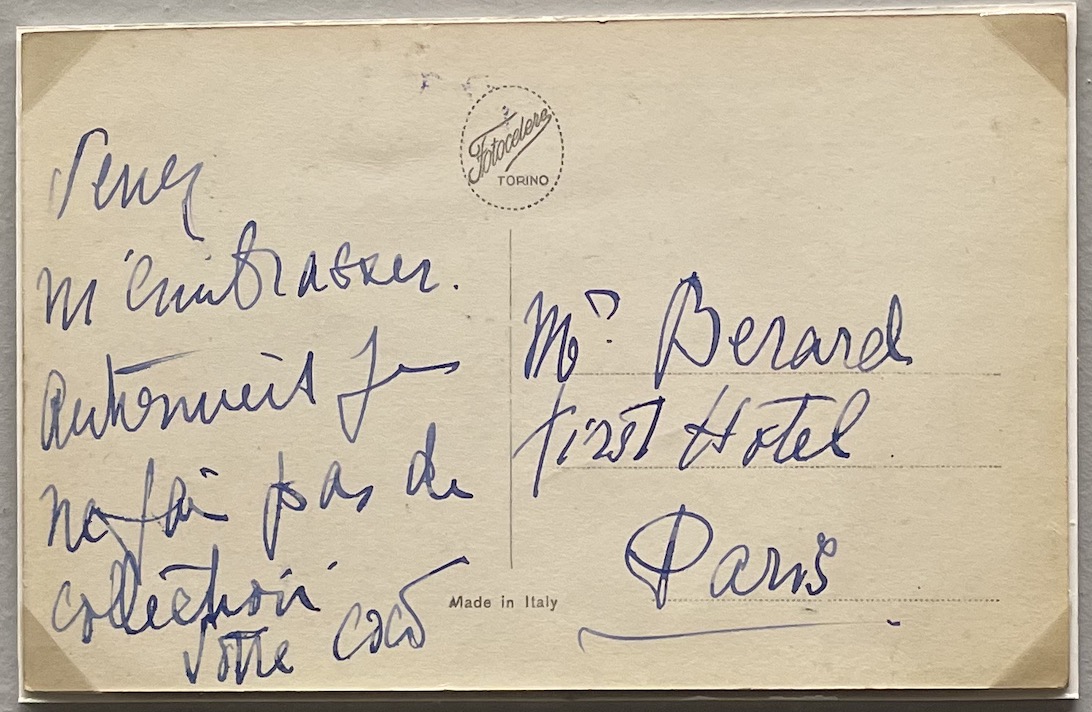 Venez
m'embrasser.
Autrement Je
ne fai pas de
collection
Votre Coco
Fotocelere
TORINO
Made in Italy
Mr Berard
first Hotel
Paris